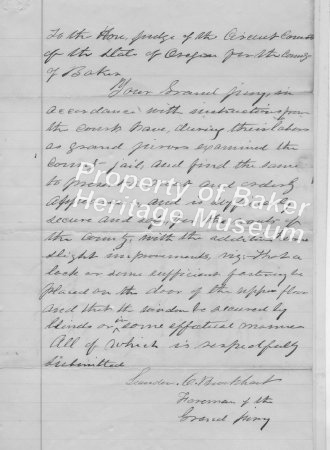 To the Hon. judge of the Circuit Court
of the State of Oregon for the County
of Baker
Your Grand jury, in
accordance with instructions from
the court have, during their labors
as grand jurors examined the
county jail, and find the same
to and orderly
and is
secure and of
the county, with the addition
slight improvements, viz. that a
lock or some sufficient fastening be
placed on the door of the upper floor
and that the window be secured by
blinds or in some effectual manner
All of which is respectfully
submitted
C. Brockhart
Foreman of the
Grand jury
Property of Baker
Heritage Museum